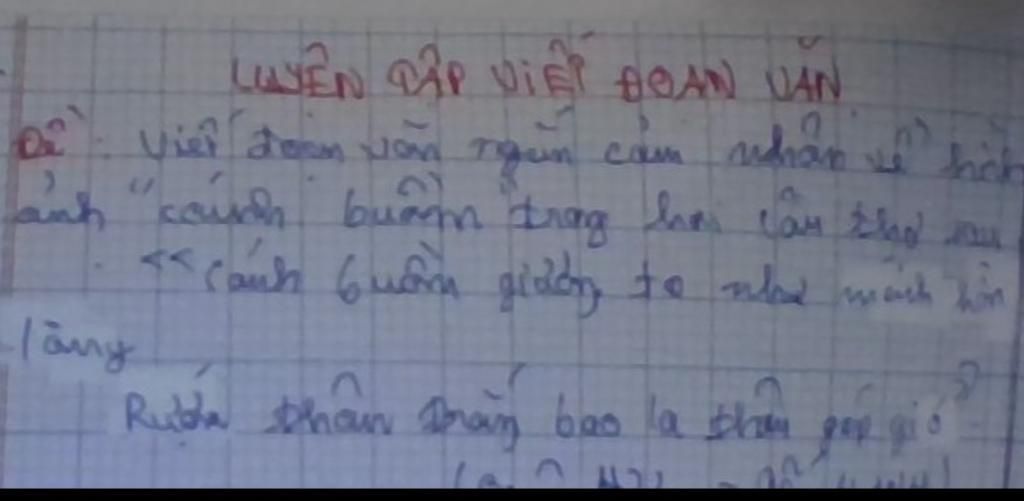 LUYỆN TẬP VIẾT ĐOẠN VĂN
Đề: Viết đoạn văn ngắn cảm nhận về hình
ảnh "cánh buồm trong hai câu thơ sau
<<Cánh buồm giương to như mảnh hồn
làng
Rướn thân trắng bao la thâu góp gió